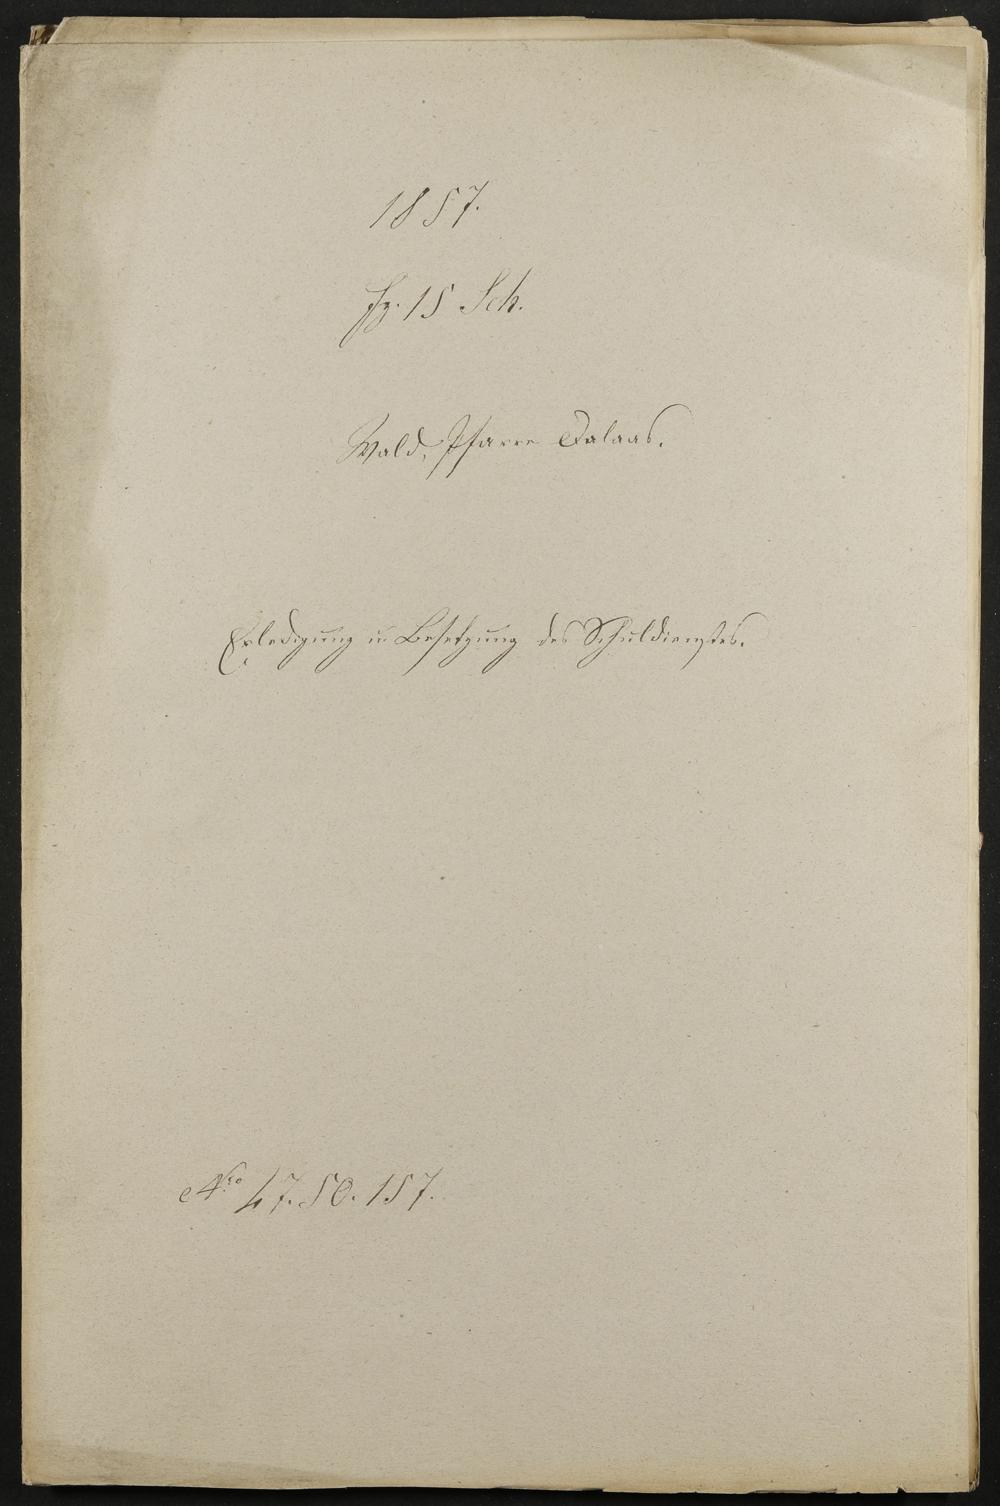 1857.
Fz. 15 Sch.
Wald, Pfarre Dalaas.
Erledigung u Besetzung des Schuldienstes.
Nro 47. 50. 157.